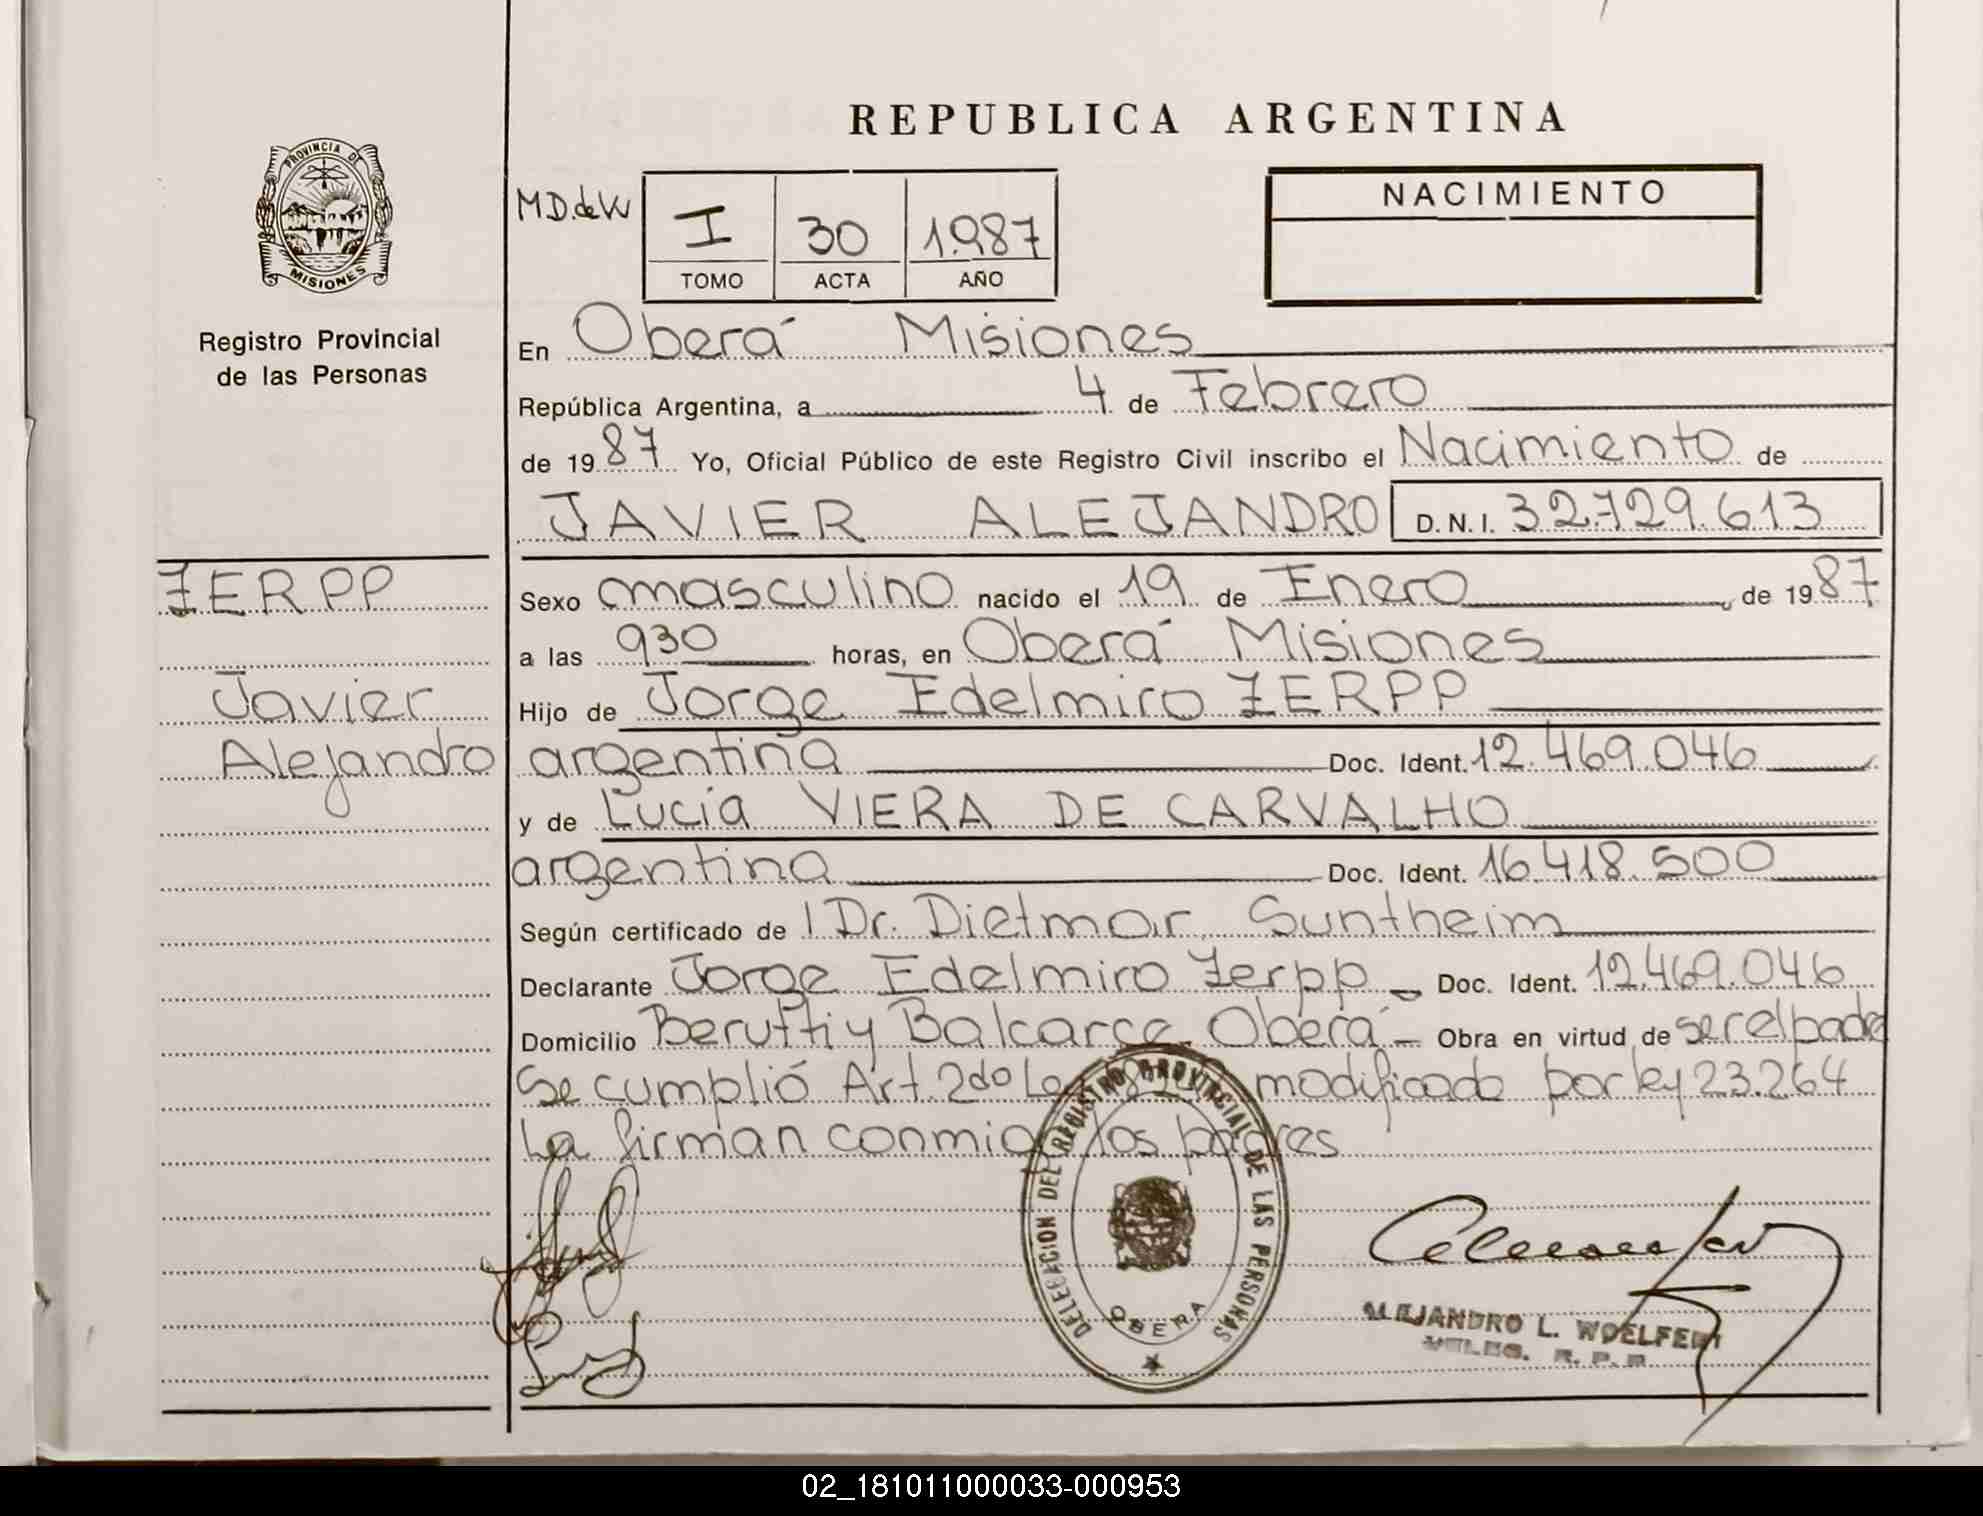 REPUBLICA ARGENTINA
PROVINCIA DE
MISIONES
Registro Provincial
de las Personas
M.D. de W
I 30 1.987
TOMO ACTA AÑO
NACIMIENTO
En Oberá Misiones
República Argentina, a 4 de Febrero
de 1987 Yo, Oficial Público de este Registro Civil inscribo el Nacimiento de
JAVIER ALEJANDRO D.N.I. 32.729.613
ZERPP
Javier
Alejandro
Sexo masculino nacido el 19 de Enero, de 1987
a las 930 horas, en Oberá Misiones
Hijo de Jorge Edelmiro ZERPP
argentina Doc. Ident. 12.469.046
y de Lucía VIERA DE CARVALHO
argentina Doc. Ident. 16.418.500
Según certificado de Dr. Dietmar Suntheim
Declarante Jorge Edelmiro Zerpp Doc. Ident. 12.469.046
Domicilio Berutti y Balcarce Oberá Obra en virtud de ser el padre
Se cumplió Art. 2do modificado por ley 23.264
La firman conmigo los padres
DELEGACION DEL REGISTRO PROVINCIAL DE LAS PERSONAS
OBERA
ALEJANDRO L. WOELFERT
R. P. P.
02_181011000033-000953